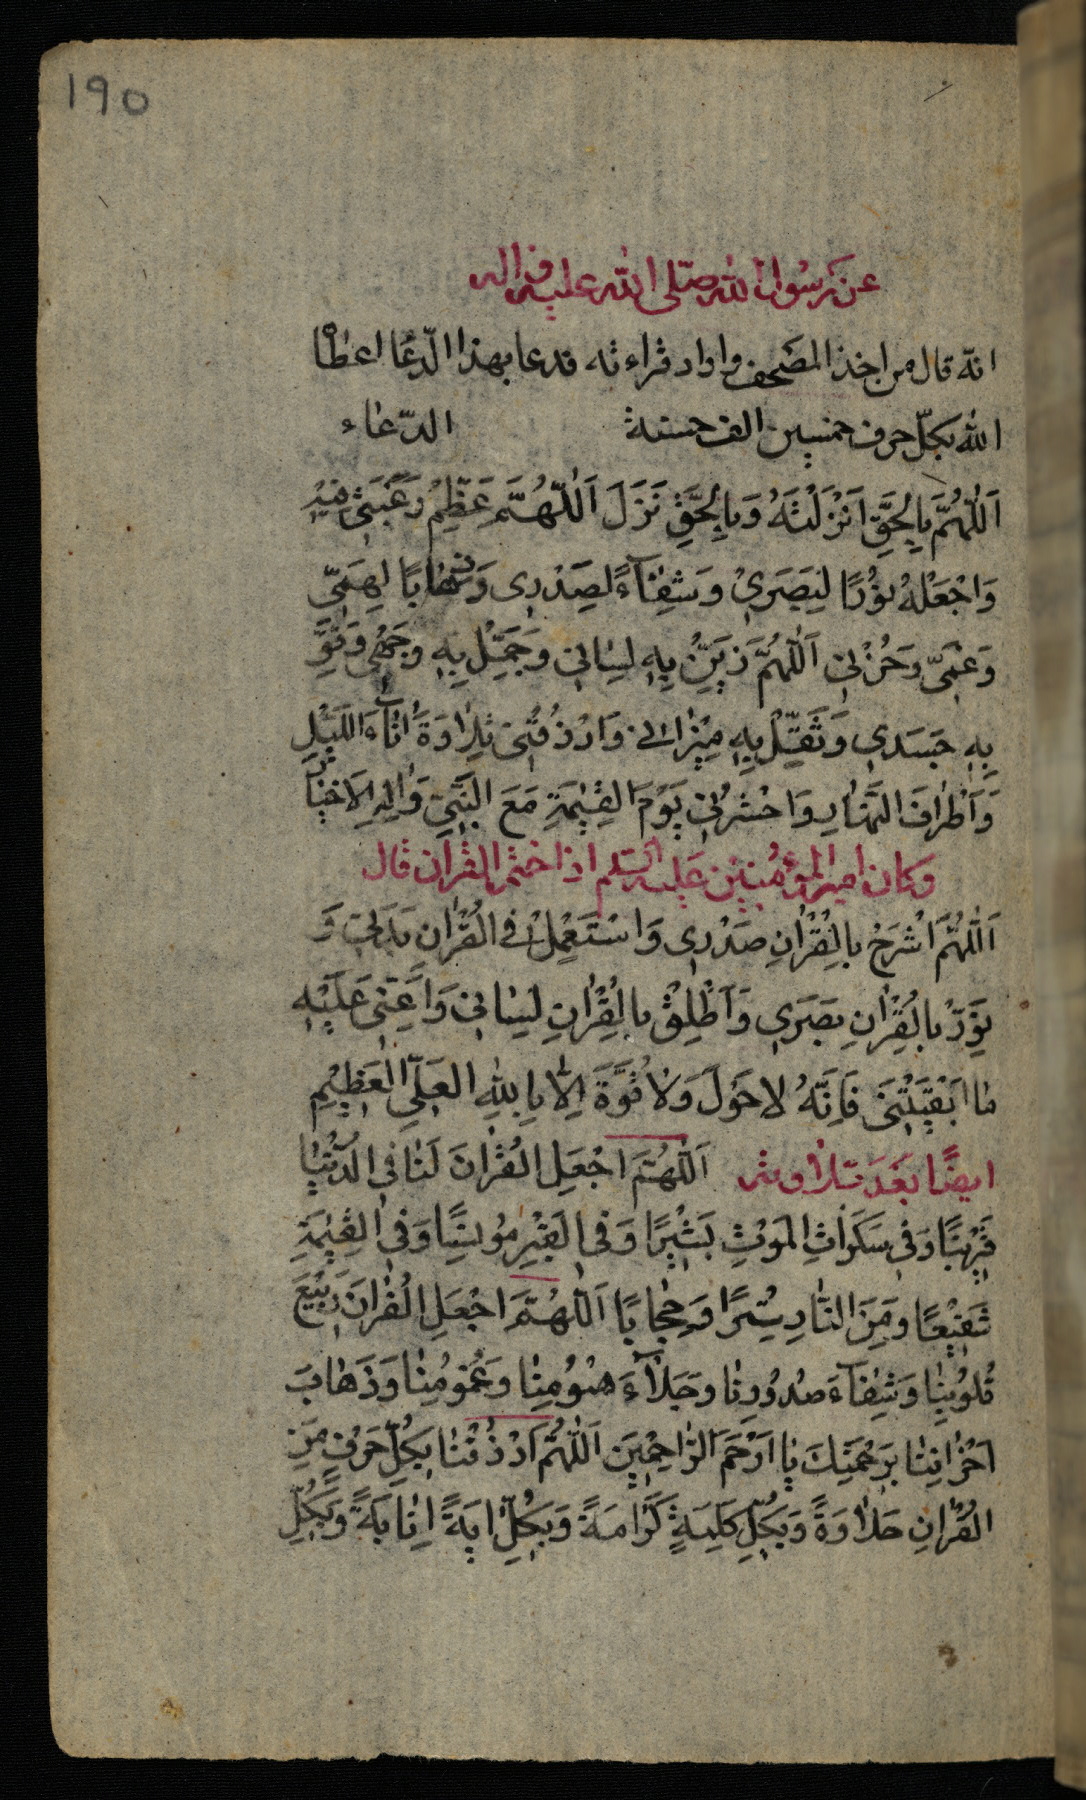 ١٩٥
عن رسول الله صلّى الله عليه واله
انّه قال من اخذ المصحف واراد قراءته فدعا بهذا الدّعا اعطاه
الله بكلّ حرف خمسين الف حسنة الدّعاء
اَللّٰهُمَّ بِالْحَقِّ اَنْزَلْتَهُ وَبِالْحَقِّ نَزَلَ اَللّٰهُمَّ عَظِّمْ رَغْبَتِي فِيهِ
وَاجْعَلْهُ نُورًا لِبَصَرِي وَشِفَآءً لِصَدْرِي وَذَهَابًا لِهَمِّي
وَغَمِّي وَحُزْنِي اَللّٰهُمَّ زَيِّنْ بِهِ لِسَانِي وَجَمِّلْ بِهِ وَجْهِي وَقَوِّ
بِهِ جَسَدِي وَثَقِّلْ بِهِ مِيْزَانِي وَارْزُقْنِي تِلَاوَتَهُ اٰنَآءَ اللَّيْلِ
وَاَطْرَافَ النَّهَارِ وَاحْشُرْنِي يَوْمَ القِيٰمَةِ مَعَ النَّبِيِّ وَاٰلِهِ الاَخْيَارِ
وكان امير المؤمنين عليه السّلم اذا ختم القران قال
اَللّٰهُمَّ اشْرَحْ بِالْقُرْاٰنِ صَدْرِي وَاسْتَعْمِلْ في القُرْاٰنِ بَدَنِي وَ
نَوِّرْ بِالْقُرْاٰنِ بَصَرِي وَاَطْلِقْ بِالْقُرْاٰنِ لِسَانِي وَاَعِنِّي عَلَيْهِ
مَا اَبْقَيْتَنِي فَاِنَّهُ لَا حَوْلَ وَلَا قُوَّةَ اِلَّا بِاللهِ العَلِيِّ الْعَظِيْمِ
ايضًا بَعْدَ تلاوته اَللّٰهُمَّ اجْعَلِ القُرْاٰنَ لَنَا في الدُّنْيَا
قَرِيْنًا وَفي سَكَرَاتِ المَوْتِ بَشِيْرًا وَفي القَبْرِ مُونِسًا وَفي القِيٰمَةِ
شَفِيْعًا وَمِنَ النَّارِ سِتْرًا وَحِجَابًا اَللّٰهُمَّ اجْعَلِ الْقُرْاٰنَ رَبِيْعَ
قُلُوبِنَا وَشِفَآءَ صُدُورِنَا وَجَلَآءَ هُمُومِنَا وَغُمُومِنَا وَذَهَابَ
اَحْزَانِنَا بِرَحْمَتِكَ يَا اَرْحَمَ الرَّاحِمِيْنَ اَللّٰهُمَّ ارْزُقْنَا بِكُلِّ حَرْفٍ مِنَ
القُرْاٰنِ حَلَاوَةً وَبِكُلِّ كَلِمَةٍ كَرَامَةً وَبِكُلِّ اٰيَةٍ اِنَابَةً وَبِكُلِّ